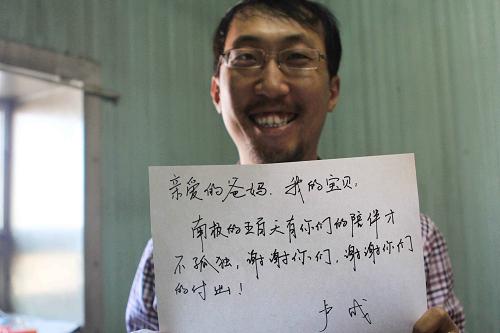 亲爱的爸妈、我的宝贝:
南极的五百天有你们的陪伴才
不孤独,谢谢你们,谢谢你们
的付出!
卢成